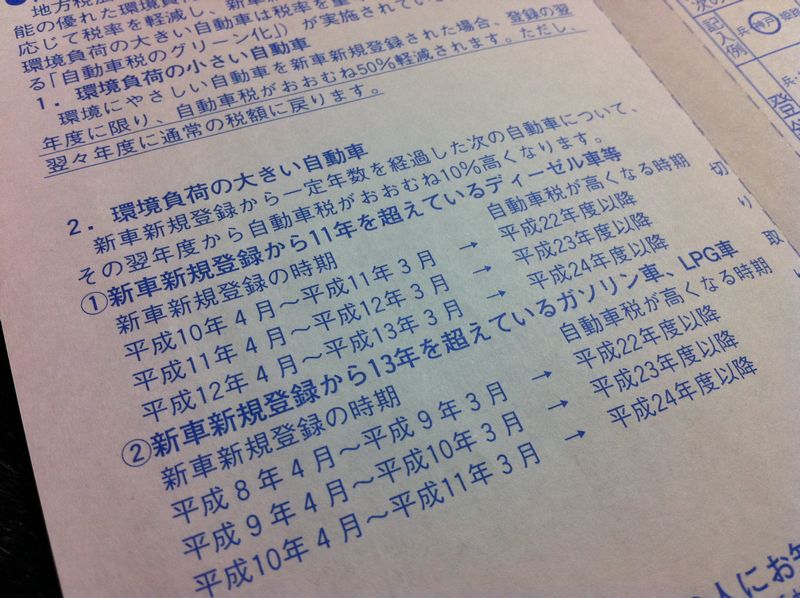 地方税法
能の優れた環境負荷
応じて税率を軽減し、新車新
環境負荷の大きい自動車は税率を重
る「自動車税のグリーン化」）が実施されてい
1．環境負荷の小さい自動車
環境にやさしい自動車を新車新規登録された場合、登録の翌
年度に限り、自動車税がおおむね50％軽減されます。ただし、
翌々年度に通常の税額に戻ります。
2．環境負荷の大きい自動車
新車新規登録から一定年数を経過した次の自動車について、
その翌年度から自動車税がおおむね10％高くなります。
①新車新規登録から11年を超えているディーゼル車等
新車新規登録の時期　自動車税が高くなる時期
平成10年4月〜平成11年3月　→　平成22年度以降
平成11年4月〜平成12年3月　→　平成23年度以降
平成12年4月〜平成13年3月　→　平成24年度以降
②新車新規登録から13年を超えているガソリン車、LPG車
新車新規登録の時期　自動車税が高くなる時期
平成8年4月〜平成9年3月　→　平成22年度以降
平成9年4月〜平成10年3月　→　平成23年度以降
平成10年4月〜平成11年3月　→　平成24年度以降
切り取
記入例
神戸
登
の人にお知